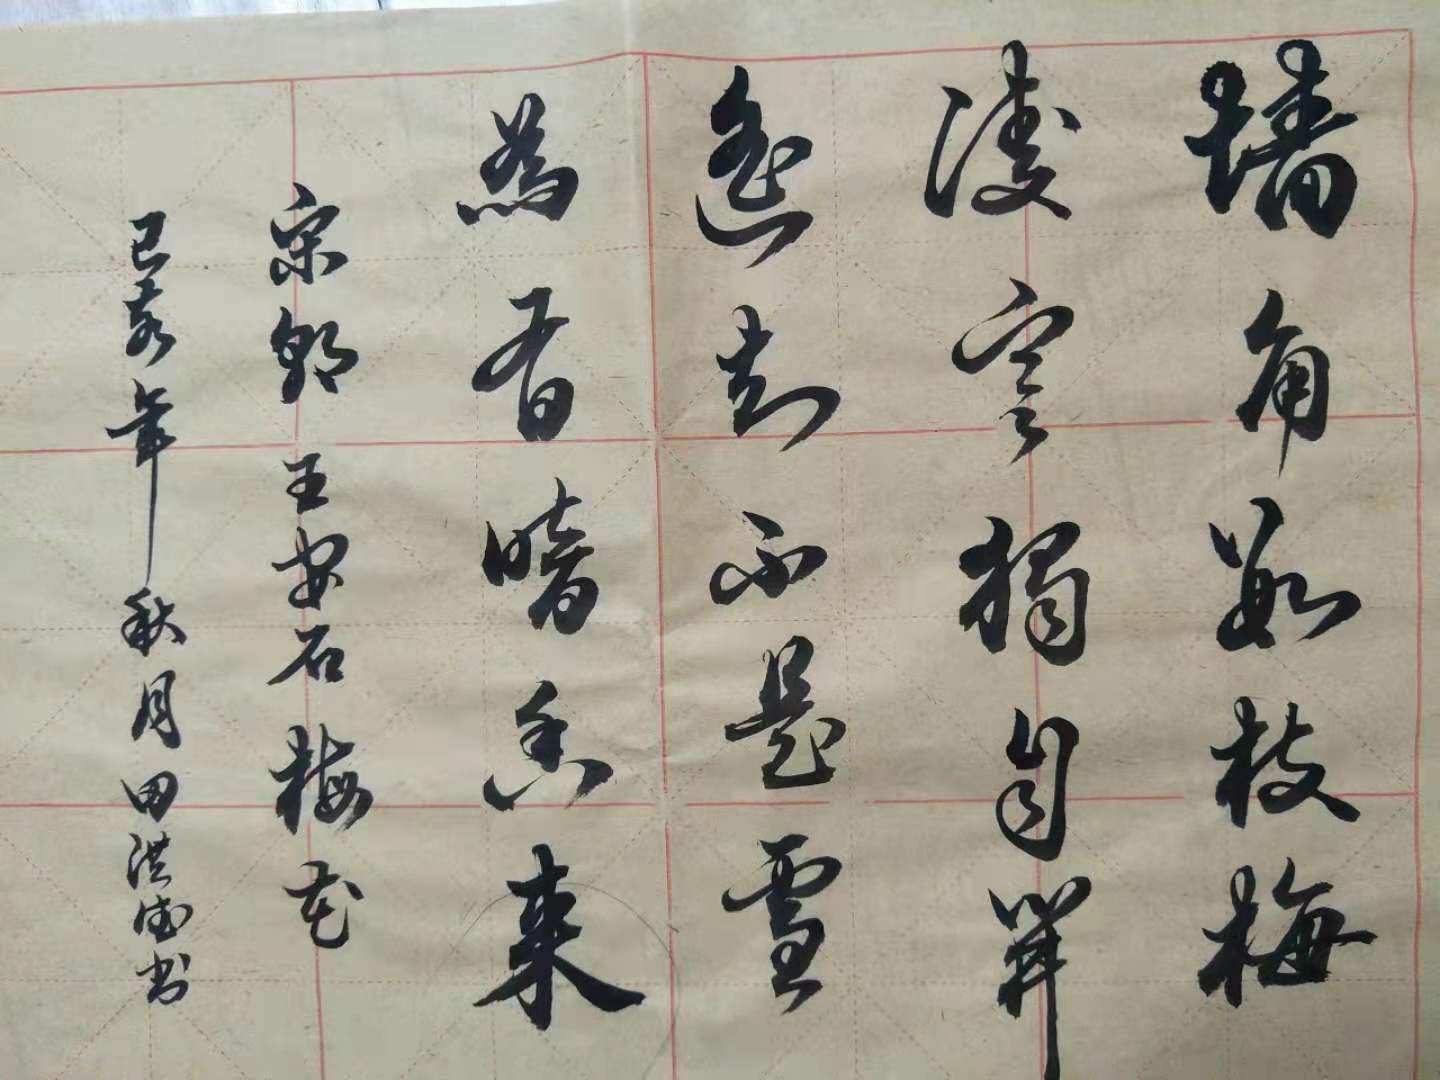 墙角数枝梅
凌寒独自開
遥知不是雪
為有暗香来
宋卿王安石梅花
己亥年秋月田洪德书